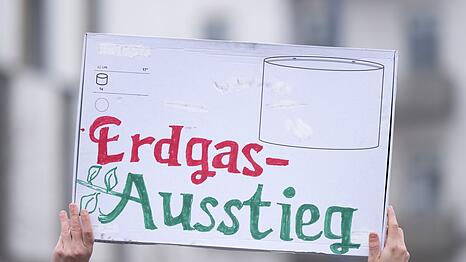 Erdgas-
Ausstieg